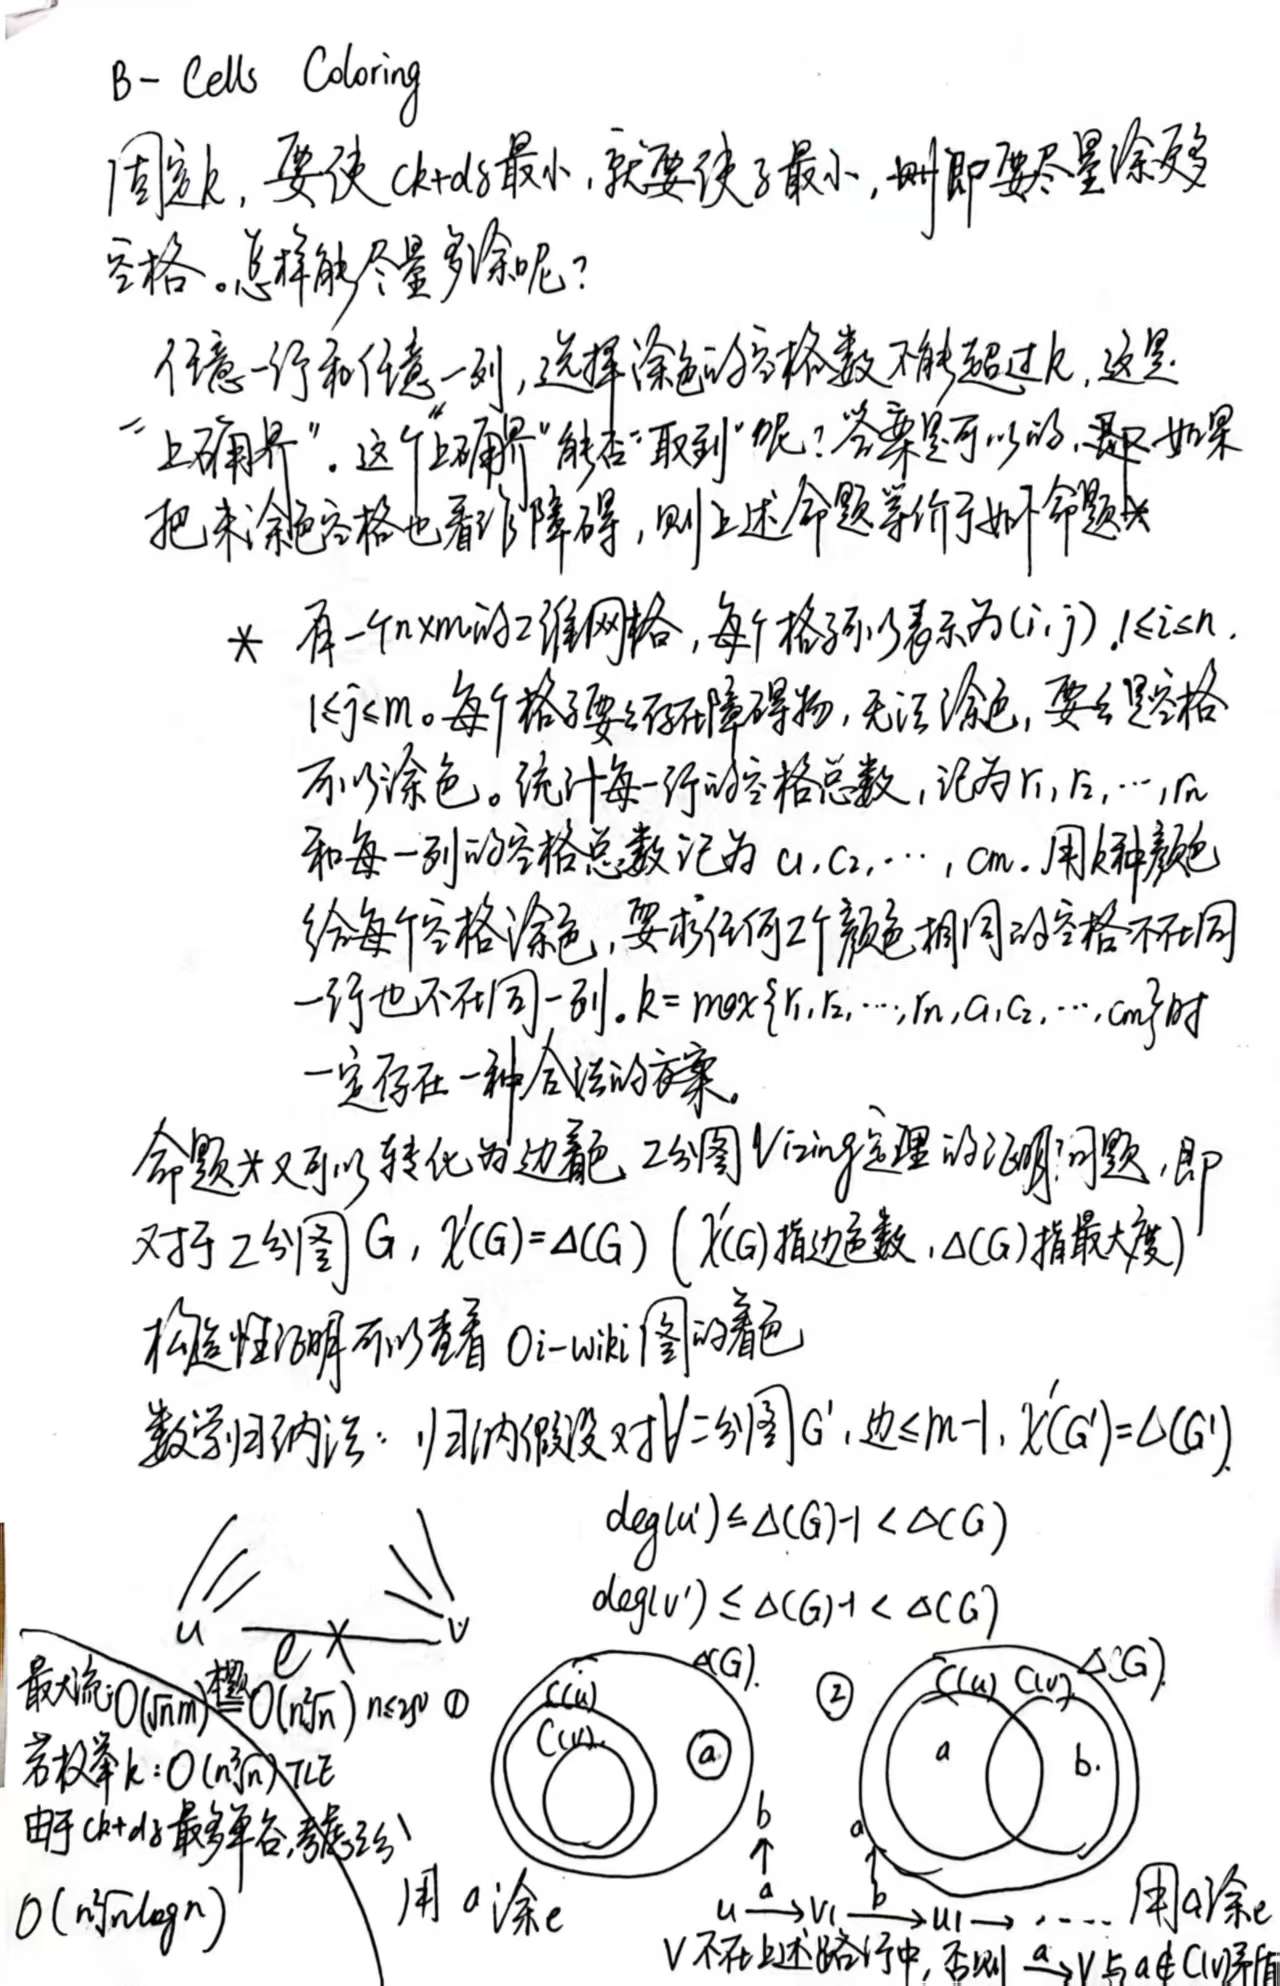 B- Cells Coloring
固定k, 要使ck+dδ最小, 就要使δ最小, 即要尽量涂更多
空格。怎样能尽量多涂呢?
任意一行和任意一列, 选择涂色的空格数不能超过k, 这是
"上确界"。这个"上确界"能否"取到"呢? 答案是可以的, 如果
把未涂色空格也看作障碍, 则上述命题等价于如下命题*
* 有一个n×m的2维网格, 每个格子可以表示为(i,j), 1≤i≤n,
1≤j≤m。每个格子要么存在障碍物, 无法涂色, 要么是空格
可以涂色。统计每一行的空格总数, 记为r1, r2, ..., rn
和每一列的空格总数记为 c1, c2, ..., cm. 用k种颜色
给每个空格涂色, 要求任何2个颜色相同的空格不在同
一行也不在同一列。k = max{r1, r2, ..., rn, c1, c2, ..., cm}时
一定存在一种合法的方案。
命题*又可以转化为边着色 2分图Vizing定理的证明问题, 即
对于2分图G, χ'(G)=Δ(G) (χ'(G)指边色数, Δ(G)指最大度)
构造性证明可以查看 Oi-wiki 图的着色
数学归纳法: 归纳假设对∀二分图G', 边≤m-1, χ'(G')=Δ(G').
deg(u')≤Δ(G)-1<Δ(G)
deg(v')≤Δ(G)-1<Δ(G)
u e v
最大流: O(√nm) = O(n²√n) n≤250
若枚举k: O(n³√n) TLE
由于ck+dδ最多单谷, 考虑三分
O(n²√nlogn)
① Δ(G).
C(u)
C(v)
a
用a涂e
② C(u) C(v) Δ(G).
a b.
b a
u →a v1 →b u1 → ..... 用a涂e
v不在上述路径中, 否则 →a v与a∉C(v)矛盾